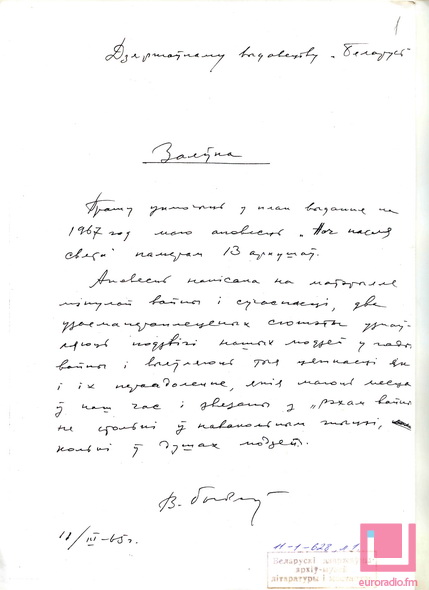 1
Дзяржаўнаму выдавецтву „Беларусь
Заяўка
Прашу уключыць у план выдання на
1967 год маю аповесць „Ноч пасля
свята" памерам 13 аркушаў.
Аповесць напісана на матэрыяле
мінулай вайны і сучаснасці, две
сюжэты
подзвігі нашых людзей у гады
вайны і тыя цяжкасці як
і іх пераадоленне, якія маюць месца
ў наш час і звязаны з „рэхам вайны
не столькі ў навакольным жыцці,
колькі ў душах людзей.
В. Быкаў
11/III-65г.
11-1-028 л1
Беларускі дзяржаўны
архіў-музей
літаратуры і мастацтва
euroradio.fm